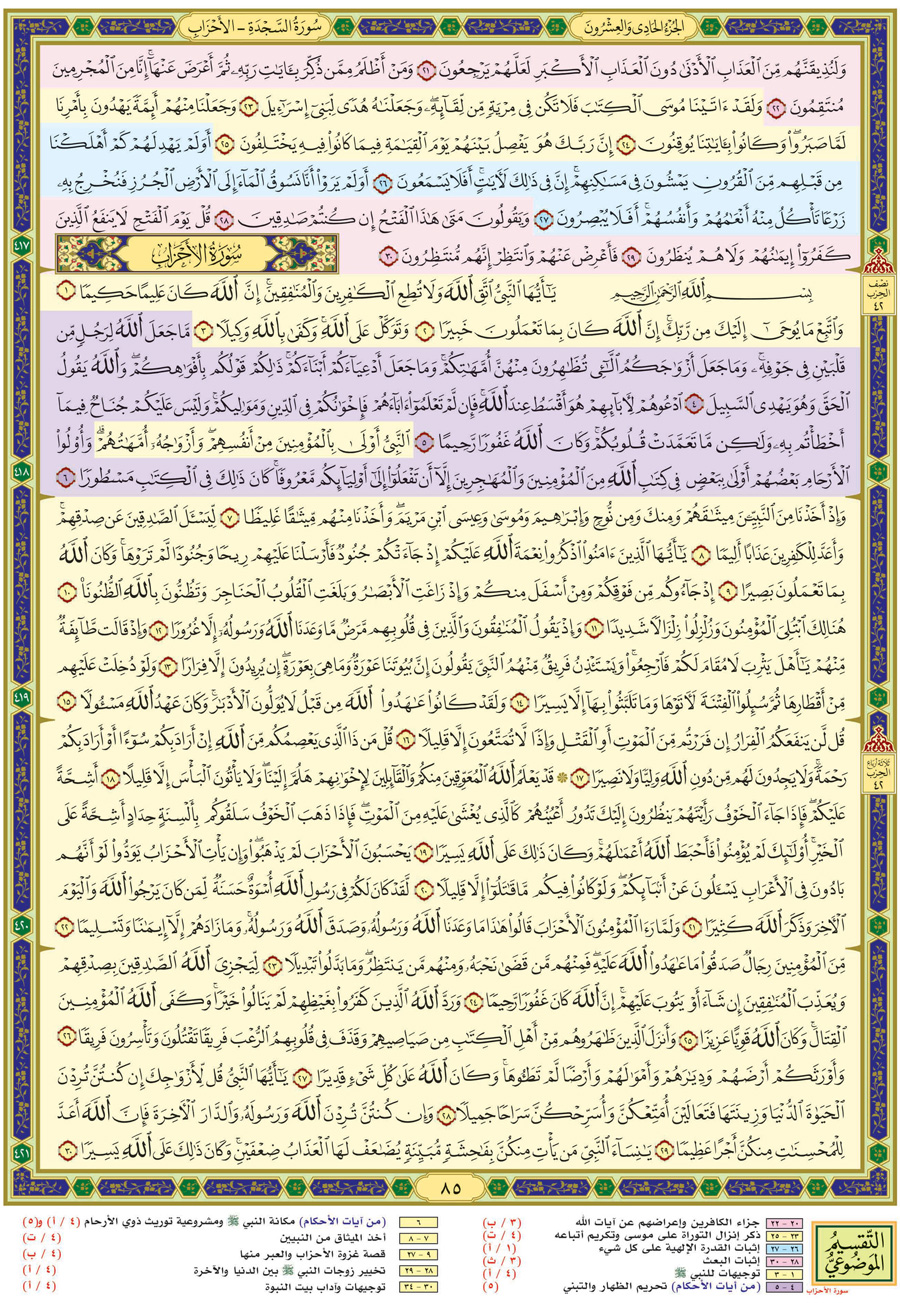 الجزء الحادي والعشرون
سورة السجدة - الأحزاب
وَلَنُذِيقَنَّهُم مِّنَ ٱلْعَذَابِ ٱلْأَدْنَىٰ دُونَ ٱلْعَذَابِ ٱلْأَكْبَرِ لَعَلَّهُمْ يَرْجِعُونَ ٢١ وَمَنْ أَظْلَمُ مِمَّن ذُكِّرَ بِـَٔايَٰتِ رَبِّهِۦ ثُمَّ أَعْرَضَ عَنْهَآ ۚ إِنَّا مِنَ ٱلْمُجْرِمِينَ
مُنتَقِمُونَ ٢٢ وَلَقَدْ ءَاتَيْنَا مُوسَى ٱلْكِتَٰبَ فَلَا تَكُن فِى مِرْيَةٍ مِّن لِّقَآئِهِۦ ۖ وَجَعَلْنَٰهُ هُدًى لِّبَنِىٓ إِسْرَٰٓءِيلَ ٢٣ وَجَعَلْنَا مِنْهُمْ أَئِمَّةً يَهْدُونَ بِأَمْرِنَا
لَمَّا صَبَرُوا۟ ۖ وَكَانُوا۟ بِـَٔايَٰتِنَا يُوقِنُونَ ٢٤ إِنَّ رَبَّكَ هُوَ يَفْصِلُ بَيْنَهُمْ يَوْمَ ٱلْقِيَٰمَةِ فِيمَا كَانُوا۟ فِيهِ يَخْتَلِفُونَ ٢٥ أَوَلَمْ يَهْدِ لَهُمْ كَمْ أَهْلَكْنَا
مِن قَبْلِهِم مِّنَ ٱلْقُرُونِ يَمْشُونَ فِى مَسَٰكِنِهِمْ ۚ إِنَّ فِى ذَٰلِكَ لَـَٔايَٰتٍ ۖ أَفَلَا يَسْمَعُونَ ٢٦ أَوَلَمْ يَرَوْا۟ أَنَّا نَسُوقُ ٱلْمَآءَ إِلَى ٱلْأَرْضِ ٱلْجُرُزِ فَنُخْرِجُ بِهِۦ
زَرْعًا تَأْكُلُ مِنْهُ أَنْعَٰمُهُمْ وَأَنفُسُهُمْ ۖ أَفَلَا يُبْصِرُونَ ٢٧ وَيَقُولُونَ مَتَىٰ هَٰذَا ٱلْفَتْحُ إِن كُنتُمْ صَٰدِقِينَ ٢٨ قُلْ يَوْمَ ٱلْفَتْحِ لَا يَنفَعُ ٱلَّذِينَ
كَفَرُوٓا۟ إِيمَٰنُهُمْ وَلَا هُمْ يُنظَرُونَ ٢٩ فَأَعْرِضْ عَنْهُمْ وَٱنتَظِرْ إِنَّهُم مُّنتَظِرُونَ ٣٠ سُورَةُ الأَحْزَابِ
بِسْمِ ٱللَّهِ ٱلرَّحْمَٰنِ ٱلرَّحِيمِ يَٰٓأَيُّهَا ٱلنَّبِىُّ ٱتَّقِ ٱللَّهَ وَلَا تُطِعِ ٱلْكَٰفِرِينَ وَٱلْمُنَٰفِقِينَ ۗ إِنَّ ٱللَّهَ كَانَ عَلِيمًا حَكِيمًا ١
وَٱتَّبِعْ مَا يُوحَىٰٓ إِلَيْكَ مِن رَّبِّكَ ۚ إِنَّ ٱللَّهَ كَانَ بِمَا تَعْمَلُونَ خَبِيرًا ٢ وَتَوَكَّلْ عَلَى ٱللَّهِ ۚ وَكَفَىٰ بِٱللَّهِ وَكِيلًا ٣ مَّا جَعَلَ ٱللَّهُ لِرَجُلٍ مِّن
قَلْبَيْنِ فِى جَوْفِهِۦ ۚ وَمَا جَعَلَ أَزْوَٰجَكُمُ ٱلَّٰٓـِٔى تُظَٰهِرُونَ مِنْهُنَّ أُمَّهَٰتِكُمْ ۚ وَمَا جَعَلَ أَدْعِيَآءَكُمْ أَبْنَآءَكُمْ ۚ ذَٰلِكُمْ قَوْلُكُم بِأَفْوَٰهِكُمْ ۖ وَٱللَّهُ يَقُولُ
ٱلْحَقَّ وَهُوَ يَهْدِى ٱلسَّبِيلَ ٤ ٱدْعُوهُمْ لِـَٔابَآئِهِمْ هُوَ أَقْسَطُ عِندَ ٱللَّهِ ۚ فَإِن لَّمْ تَعْلَمُوٓا۟ ءَابَآءَهُمْ فَإِخْوَٰنُكُمْ فِى ٱلدِّينِ وَمَوَٰلِيكُمْ ۚ وَلَيْسَ عَلَيْكُمْ جُنَاحٌ فِيمَآ
أَخْطَأْتُم بِهِۦ وَلَٰكِن مَّا تَعَمَّدَتْ قُلُوبُكُمْ ۚ وَكَانَ ٱللَّهُ غَفُورًا رَّحِيمًا ٥ ٱلنَّبِىُّ أَوْلَىٰ بِٱلْمُؤْمِنِينَ مِنْ أَنفُسِهِمْ ۖ وَأَزْوَٰجُهُۥٓ أُمَّهَٰتُهُمْ ۗ وَأُو۟لُوا۟
ٱلْأَرْحَامِ بَعْضُهُمْ أَوْلَىٰ بِبَعْضٍ فِى كِتَٰبِ ٱللَّهِ مِنَ ٱلْمُؤْمِنِينَ وَٱلْمُهَٰجِرِينَ إِلَّآ أَن تَفْعَلُوٓا۟ إِلَىٰٓ أَوْلِيَآئِكُم مَّعْرُوفًا ۚ كَانَ ذَٰلِكَ فِى ٱلْكِتَٰبِ مَسْطُورًا ٦
وَإِذْ أَخَذْنَا مِنَ ٱلنَّبِيِّـۧنَ مِيثَٰقَهُمْ وَمِنكَ وَمِن نُّوحٍ وَإِبْرَٰهِيمَ وَمُوسَىٰ وَعِيسَى ٱبْنِ مَرْيَمَ ۖ وَأَخَذْنَا مِنْهُم مِّيثَٰقًا غَلِيظًا ٧ لِّيَسْـَٔلَ ٱلصَّٰدِقِينَ عَن صِدْقِهِمْ ۚ
وَأَعَدَّ لِلْكَٰفِرِينَ عَذَابًا أَلِيمًا ٨ يَٰٓأَيُّهَا ٱلَّذِينَ ءَامَنُوا۟ ٱذْكُرُوا۟ نِعْمَةَ ٱللَّهِ عَلَيْكُمْ إِذْ جَآءَتْكُمْ جُنُودٌ فَأَرْسَلْنَا عَلَيْهِمْ رِيحًا وَجُنُودًا لَّمْ تَرَوْهَا ۚ وَكَانَ ٱللَّهُ
بِمَا تَعْمَلُونَ بَصِيرًا ٩ إِذْ جَآءُوكُم مِّن فَوْقِكُمْ وَمِنْ أَسْفَلَ مِنكُمْ وَإِذْ زَاغَتِ ٱلْأَبْصَٰرُ وَبَلَغَتِ ٱلْقُلُوبُ ٱلْحَنَاجِرَ وَتَظُنُّونَ بِٱللَّهِ ٱلظُّنُونَا۠ ١٠
هُنَالِكَ ٱبْتُلِىَ ٱلْمُؤْمِنُونَ وَزُلْزِلُوا۟ زِلْزَالًا شَدِيدًا ١١ وَإِذْ يَقُولُ ٱلْمُنَٰفِقُونَ وَٱلَّذِينَ فِى قُلُوبِهِم مَّرَضٌ مَّا وَعَدَنَا ٱللَّهُ وَرَسُولُهُۥٓ إِلَّا غُرُورًا ١٢ وَإِذْ قَالَت طَّآئِفَةٌ
مِّنْهُمْ يَٰٓأَهْلَ يَثْرِبَ لَا مُقَامَ لَكُمْ فَٱرْجِعُوا۟ ۚ وَيَسْتَـْٔذِنُ فَرِيقٌ مِّنْهُمُ ٱلنَّبِىَّ يَقُولُونَ إِنَّ بُيُوتَنَا عَوْرَةٌ وَمَا هِىَ بِعَوْرَةٍ ۖ إِن يُرِيدُونَ إِلَّا فِرَارًا ١٣ وَلَوْ دُخِلَتْ عَلَيْهِم
مِّنْ أَقْطَارِهَا ثُمَّ سُئِلُوا۟ ٱلْفِتْنَةَ لَـَٔاتَوْهَا وَمَا تَلَبَّثُوا۟ بِهَآ إِلَّا يَسِيرًا ١٤ وَلَقَدْ كَانُوا۟ عَٰهَدُوا۟ ٱللَّهَ مِن قَبْلُ لَا يُوَلُّونَ ٱلْأَدْبَٰرَ ۚ وَكَانَ عَهْدُ ٱللَّهِ مَسْـُٔولًا ١٥
قُل لَّن يَنفَعَكُمُ ٱلْفِرَارُ إِن فَرَرْتُم مِّنَ ٱلْمَوْتِ أَوِ ٱلْقَتْلِ وَإِذًا لَّا تُمَتَّعُونَ إِلَّا قَلِيلًا ١٦ قُلْ مَن ذَا ٱلَّذِى يَعْصِمُكُم مِّنَ ٱللَّهِ إِنْ أَرَادَ بِكُمْ سُوٓءًا أَوْ أَرَادَ بِكُمْ
رَحْمَةً ۚ وَلَا يَجِدُونَ لَهُم مِّن دُونِ ٱللَّهِ وَلِيًّا وَلَا نَصِيرًا ١٧ ۞ قَدْ يَعْلَمُ ٱللَّهُ ٱلْمُعَوِّقِينَ مِنكُمْ وَٱلْقَآئِلِينَ لِإِخْوَٰنِهِمْ هَلُمَّ إِلَيْنَا ۖ وَلَا يَأْتُونَ ٱلْبَأْسَ إِلَّا قَلِيلًا ١٨ أَشِحَّةً
عَلَيْكُمْ ۖ فَإِذَا جَآءَ ٱلْخَوْفُ رَأَيْتَهُمْ يَنظُرُونَ إِلَيْكَ تَدُورُ أَعْيُنُهُمْ كَٱلَّذِى يُغْشَىٰ عَلَيْهِ مِنَ ٱلْمَوْتِ ۖ فَإِذَا ذَهَبَ ٱلْخَوْفُ سَلَقُوكُم بِأَلْسِنَةٍ حِدَادٍ أَشِحَّةً عَلَى
ٱلْخَيْرِ ۚ أُو۟لَٰٓئِكَ لَمْ يُؤْمِنُوا۟ فَأَحْبَطَ ٱللَّهُ أَعْمَٰلَهُمْ ۚ وَكَانَ ذَٰلِكَ عَلَى ٱللَّهِ يَسِيرًا ١٩ يَحْسَبُونَ ٱلْأَحْزَابَ لَمْ يَذْهَبُوا۟ ۖ وَإِن يَأْتِ ٱلْأَحْزَابُ يَوَدُّوا۟ لَوْ أَنَّهُم
بَادُونَ فِى ٱلْأَعْرَابِ يَسْـَٔلُونَ عَنْ أَنۢبَآئِكُمْ ۖ وَلَوْ كَانُوا۟ فِيكُم مَّا قَٰتَلُوٓا۟ إِلَّا قَلِيلًا ٢٠ لَّقَدْ كَانَ لَكُمْ فِى رَسُولِ ٱللَّهِ أُسْوَةٌ حَسَنَةٌ لِّمَن كَانَ يَرْجُوا۟ ٱللَّهَ وَٱلْيَوْمَ
ٱلْـَٔاخِرَ وَذَكَرَ ٱللَّهَ كَثِيرًا ٢١ وَلَمَّا رَءَا ٱلْمُؤْمِنُونَ ٱلْأَحْزَابَ قَالُوا۟ هَٰذَا مَا وَعَدَنَا ٱللَّهُ وَرَسُولُهُۥ وَصَدَقَ ٱللَّهُ وَرَسُولُهُۥ ۚ وَمَا زَادَهُمْ إِلَّآ إِيمَٰنًا وَتَسْلِيمًا ٢٢
مِّنَ ٱلْمُؤْمِنِينَ رِجَالٌ صَدَقُوا۟ مَا عَٰهَدُوا۟ ٱللَّهَ عَلَيْهِ ۖ فَمِنْهُم مَّن قَضَىٰ نَحْبَهُۥ وَمِنْهُم مَّن يَنتَظِرُ ۖ وَمَا بَدَّلُوا۟ تَبْدِيلًا ٢٣ لِّيَجْزِىَ ٱللَّهُ ٱلصَّٰدِقِينَ بِصِدْقِهِمْ
وَيُعَذِّبَ ٱلْمُنَٰفِقِينَ إِن شَآءَ أَوْ يَتُوبَ عَلَيْهِمْ ۚ إِنَّ ٱللَّهَ كَانَ غَفُورًا رَّحِيمًا ٢٤ وَرَدَّ ٱللَّهُ ٱلَّذِينَ كَفَرُوا۟ بِغَيْظِهِمْ لَمْ يَنَالُوا۟ خَيْرًا ۚ وَكَفَى ٱللَّهُ ٱلْمُؤْمِنِينَ
ٱلْقِتَالَ ۚ وَكَانَ ٱللَّهُ قَوِيًّا عَزِيزًا ٢٥ وَأَنزَلَ ٱلَّذِينَ ظَٰهَرُوهُم مِّنْ أَهْلِ ٱلْكِتَٰبِ مِن صَيَاصِيهِمْ وَقَذَفَ فِى قُلُوبِهِمُ ٱلرُّعْبَ فَرِيقًا تَقْتُلُونَ وَتَأْسِرُونَ فَرِيقًا ٢٦
وَأَوْرَثَكُمْ أَرْضَهُمْ وَدِيَٰرَهُمْ وَأَمْوَٰلَهُمْ وَأَرْضًا لَّمْ تَطَـُٔوهَا ۚ وَكَانَ ٱللَّهُ عَلَىٰ كُلِّ شَىْءٍ قَدِيرًا ٢٧ يَٰٓأَيُّهَا ٱلنَّبِىُّ قُل لِّأَزْوَٰجِكَ إِن كُنتُنَّ تُرِدْنَ
ٱلْحَيَوٰةَ ٱلدُّنْيَا وَزِينَتَهَا فَتَعَالَيْنَ أُمَتِّعْكُنَّ وَأُسَرِّحْكُنَّ سَرَاحًا جَمِيلًا ٢٨ وَإِن كُنتُنَّ تُرِدْنَ ٱللَّهَ وَرَسُولَهُۥ وَٱلدَّارَ ٱلْـَٔاخِرَةَ فَإِنَّ ٱللَّهَ أَعَدَّ
لِلْمُحْسِنَٰتِ مِنكُنَّ أَجْرًا عَظِيمًا ٢٩ يَٰنِسَآءَ ٱلنَّبِىِّ مَن يَأْتِ مِنكُنَّ بِفَٰحِشَةٍ مُّبَيِّنَةٍ يُضَٰعَفْ لَهَا ٱلْعَذَابُ ضِعْفَيْنِ ۚ وَكَانَ ذَٰلِكَ عَلَى ٱللَّهِ يَسِيرًا ٣٠
نصف الحزب ٤٢
ثلاثة أرباع الحزب ٤٢
٤١٧
٤١٨
٤١٩
٤٢٠
٤٢١
٨٥
التقسيم الموضوعي
سورة الأحزاب
٢٠ - ٢٢ جزاء الكافرين وإعراضهم عن آيات الله (٣ / ب)
٢٣ - ٢٥ ذكر إنزال التوراة على موسى وتكريم أتباعه (٤ / ت)
٢٦ - ٢٧ إثبات القدرة الإلهية على كل شيء (١ / أ)
٢٨ - ٣٠ إثبات البعث (٣ / ث)
١ - ٣ توجيهات للنبي ﷺ (٤ / أ)
٤ - ٥ (من آيات الأحكام) تحريم الظهار والتبني (٥)
٦ (من آيات الأحكام) مكانة النبي ﷺ ومشروعية توريث ذوي الأرحام (٤ / أ) و(٥)
٧ - ٨ أخذ الميثاق من النبيين (٤ / ت)
٩ - ٢٧ قصة غزوة الأحزاب والعبر منها (٤ / ب)
٢٨ - ٢٩ تخيير زوجات النبي ﷺ بين الدنيا والآخرة (٤ / أ)
٣٠ - ٣٤ توجيهات وآداب بيت النبوة (٤ / أ)